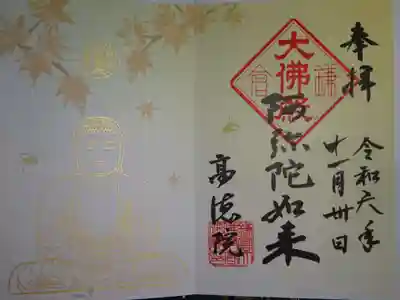 奉拝
令和六年
十一月卅日
大佛殿
鎌倉
阿弥陀如来
高徳院